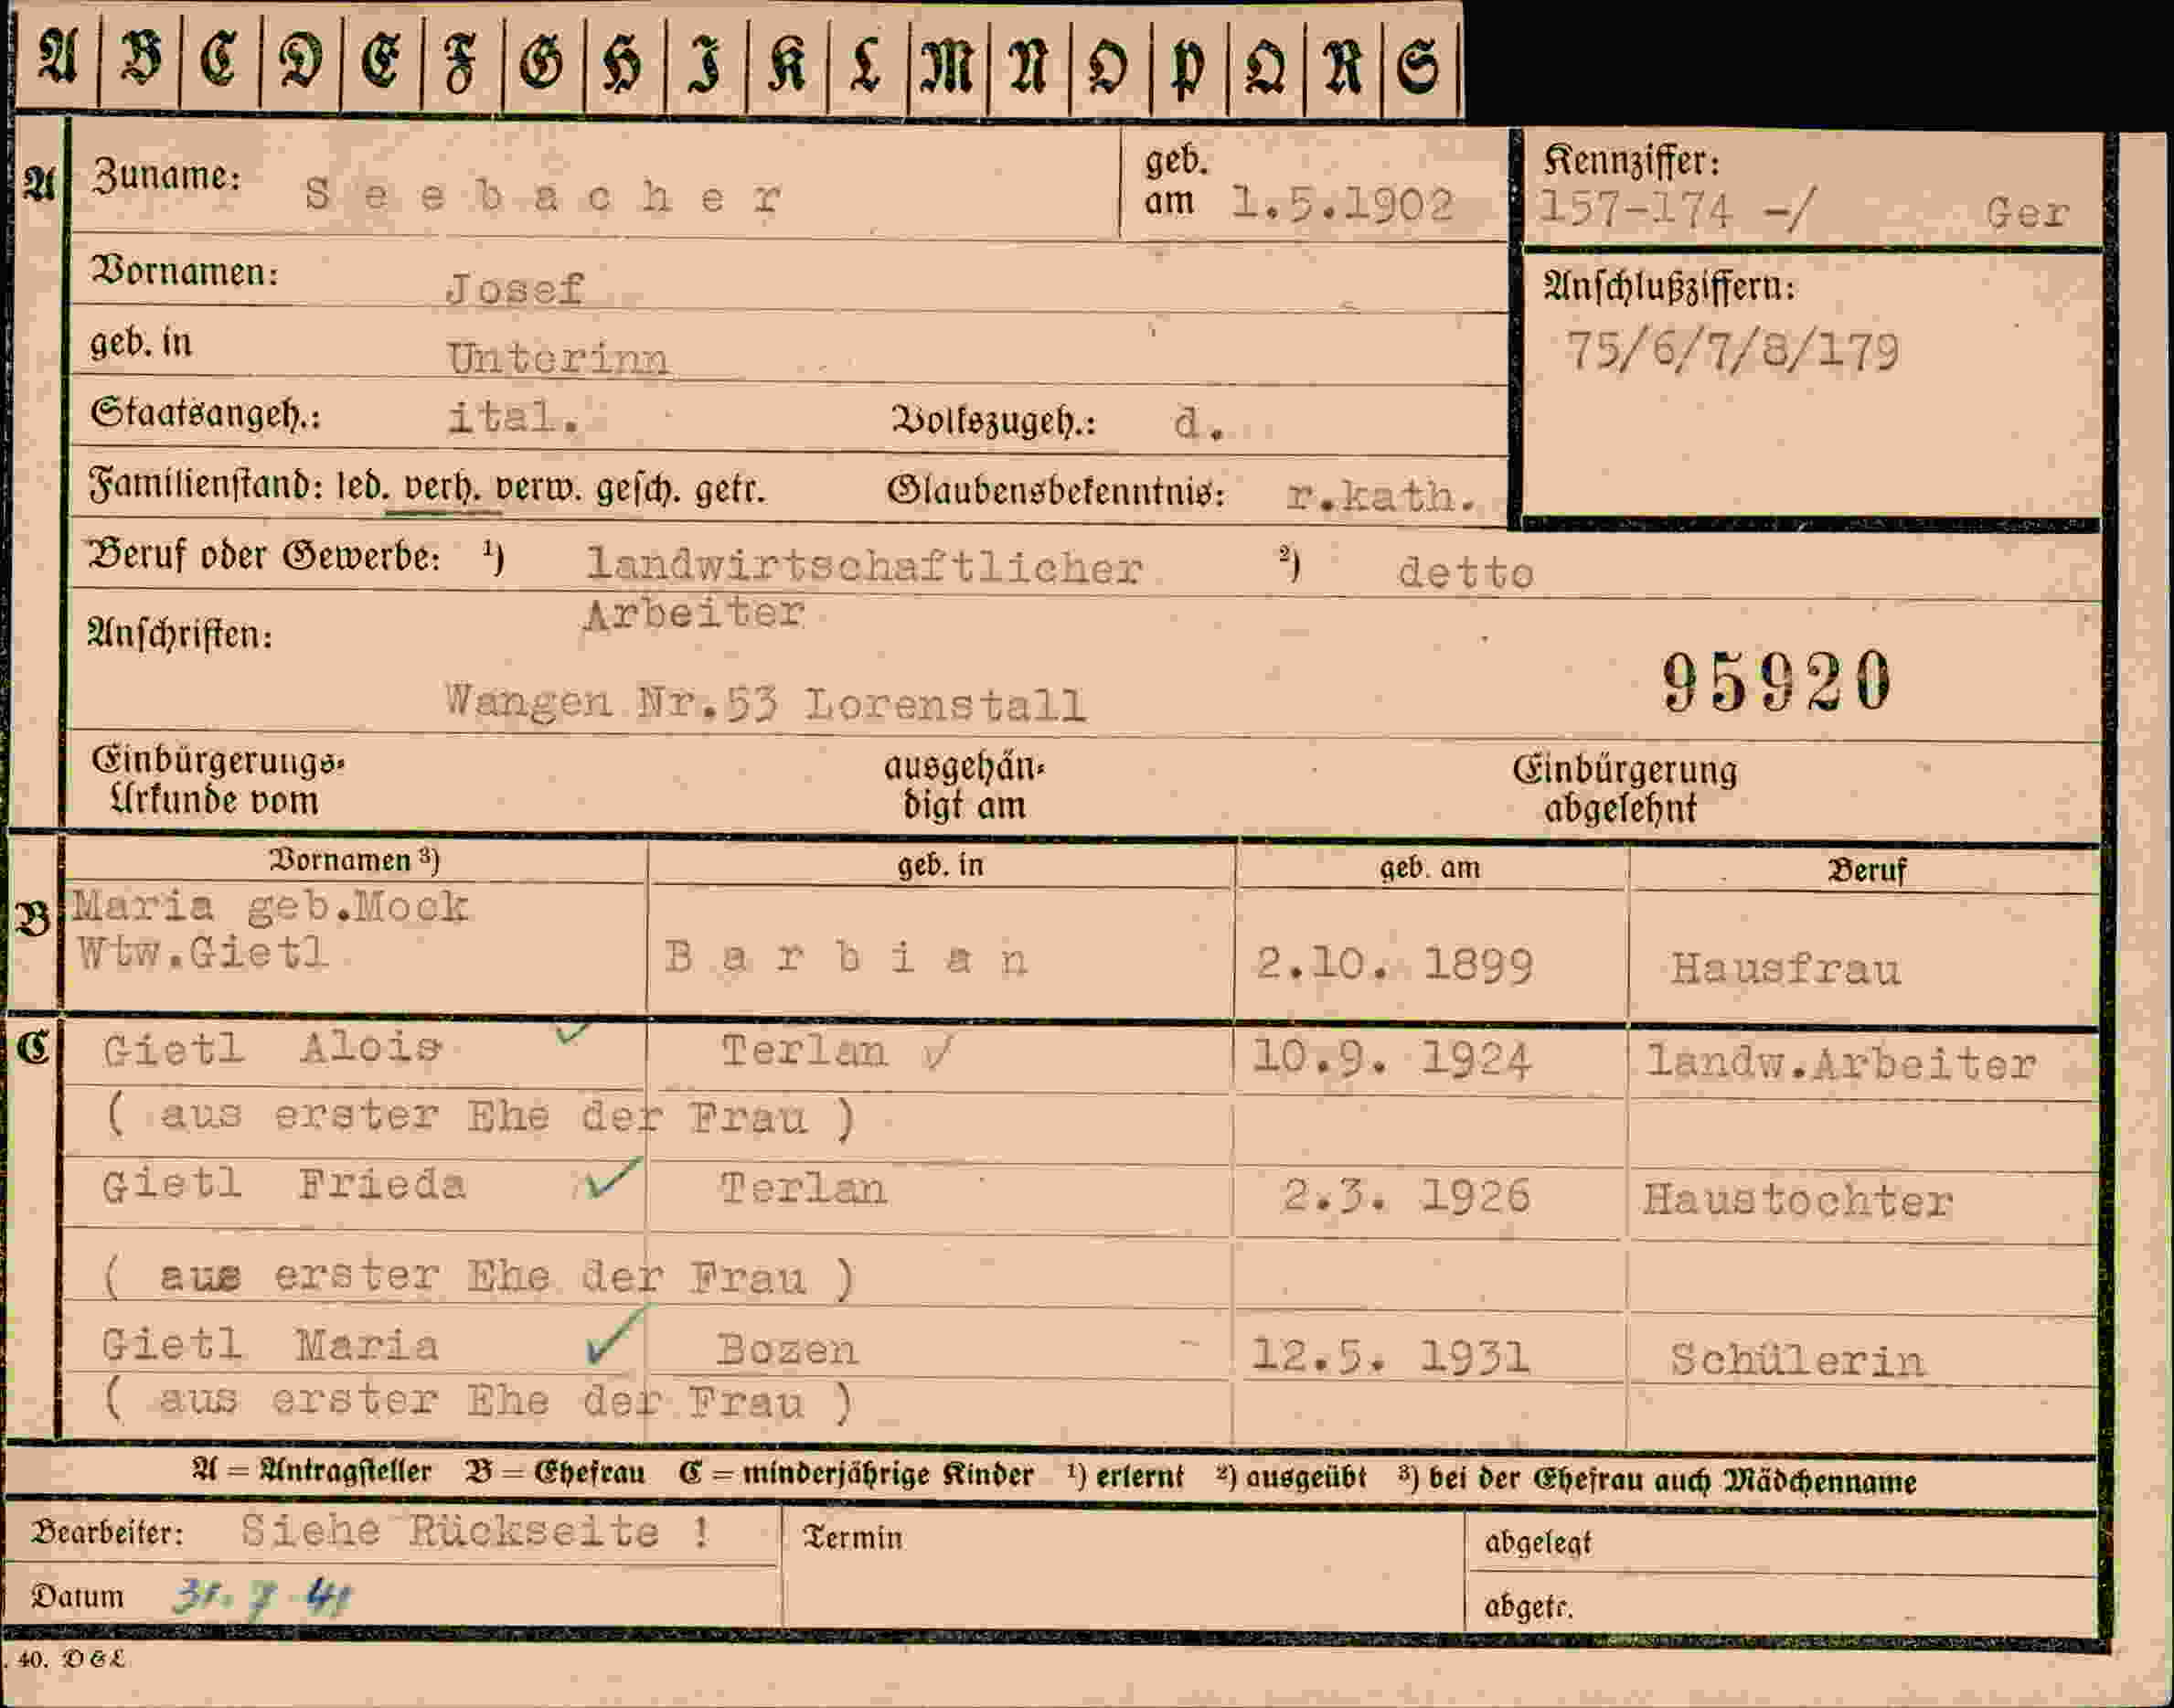 A B C D E F G H I K L M N O P Q R S
A Zuname: Seebacher geb. am 1.5.1902
Kennziffer: 157-174 -/ Ger
Vornamen: Josef
Anschlußziffern:
75/6/7/8/179
geb. in Unterinn
Staatsangeh.: ital. Volkszugeh.: d.
Familienstand: led. verh. verw. gesch. getr. Glaubensbekenntnis: r.kath.
Beruf oder Gewerbe: ¹) landwirtschaftlicher ²) detto
Arbeiter
Anschriften:
95920
Wangen Nr.53 Lorenstall
Einbürgerungs- ausgehän- Einbürgerung
Urkunde vom digt am abgelehnt
Vornamen ³) geb. in geb. am Beruf
B Maria geb.Mock
Wtw.Gietl Barbian 2.10. 1899 Hausfrau
C Gietl Alois Terlan 10.9. 1924 landw.Arbeiter
( aus erster Ehe der Frau )
Gietl Frieda Terlan 2.3. 1926 Haustochter
( aus erster Ehe der Frau )
Gietl Maria Bozen - 12.5. 1931 Schülerin
( aus erster Ehe der Frau )
A = Antragsteller B = Ehefrau C = minderjährige Kinder ¹) erlernt ²) ausgeübt ³) bei der Ehefrau auch Mädchenname
Bearbeiter: Siehe Rückseite ! Termin abgelegt
Datum 31. 7 41 abgetr.
40. D & L